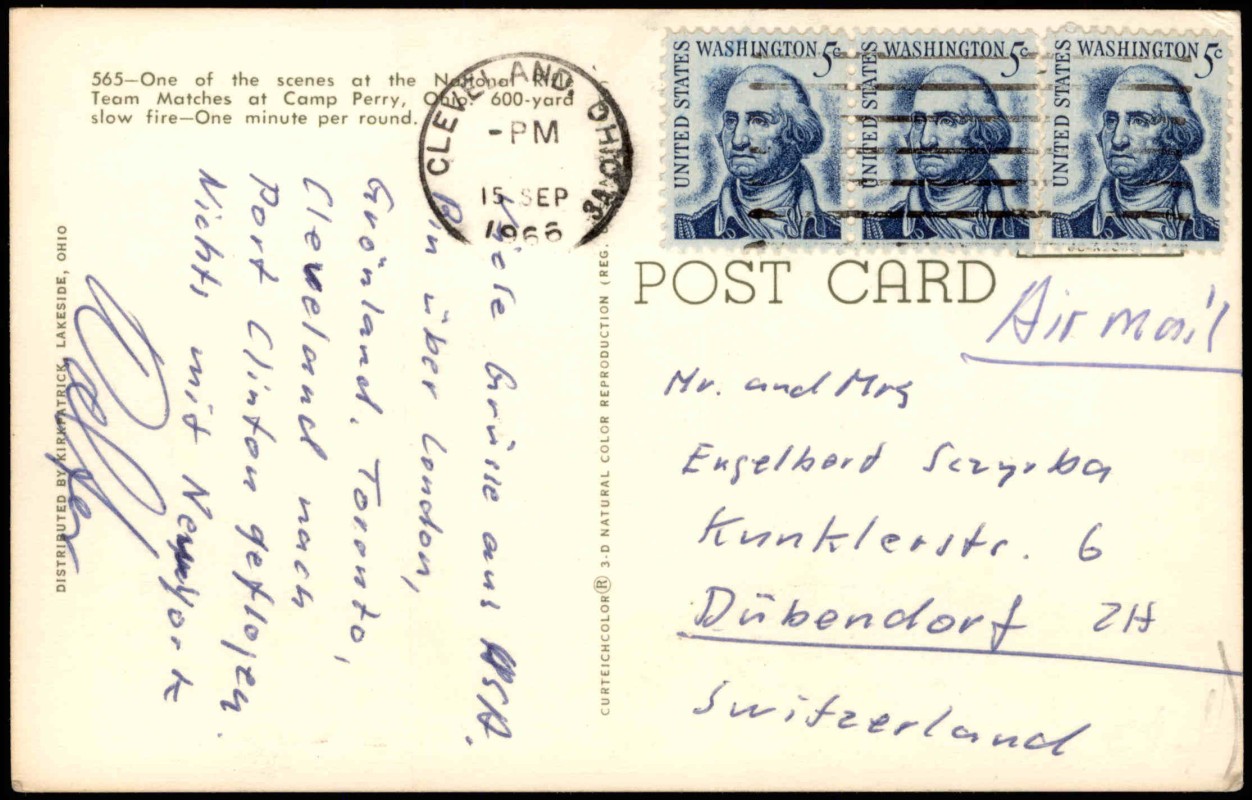 565—One of the scenes at the National Rifle
Team Matches at Camp Perry, Ohio. 600-yard
slow fire—One minute per round.
CLEVELAND, OHIO
-PM
15 SEP
1966
UNITED STATES WASHINGTON 5c
UNITED STATES WASHINGTON 5c
UNITED STATES WASHINGTON 5c
POST CARD
Air mail
Viele Grüsse aus USA.
Bin über London,
Grönland, Toronto,
Cleveland nach
Port Clinton geflogen.
Nicht mit New York
Mr. and Mrs
Engelbord Sczyrba
Kunklerstr. 6
Dübendorf ZH
Switzerland
DISTRIBUTED BY KIRKPATRICK, LAKESIDE, OHIO
CURTEICHCOLOR® 3-D NATURAL COLOR REPRODUCTION (REG.